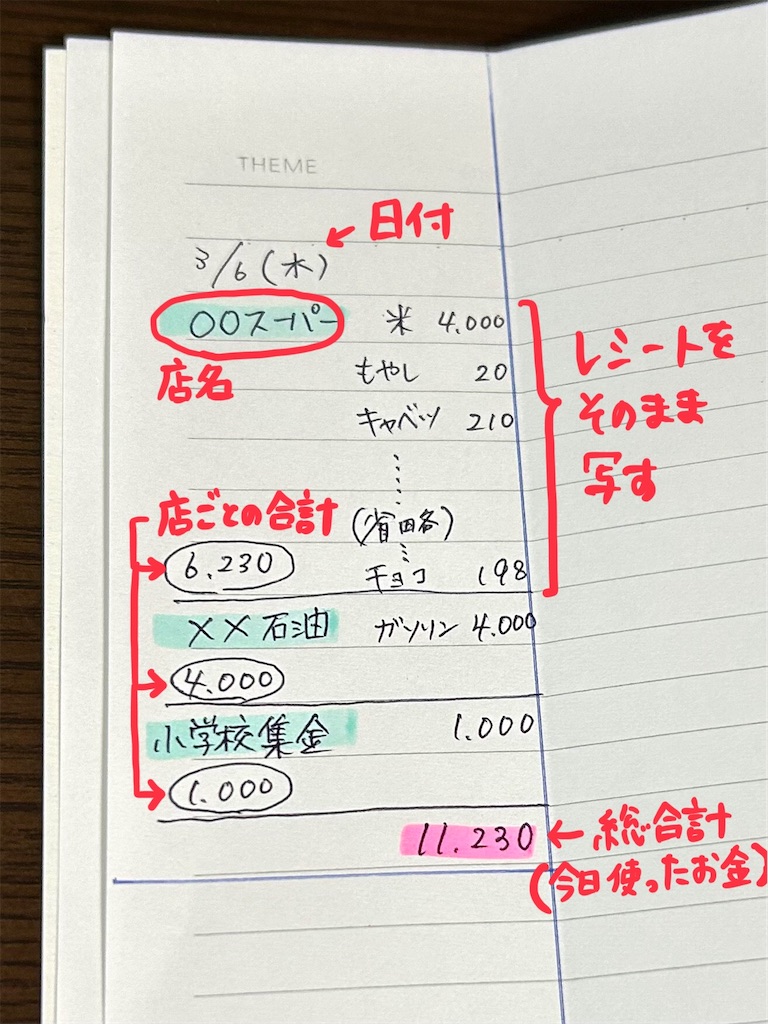 THEME
日付
3/6(木)
〇〇スーパー 米 4.000
店名
もやし 20
キャベツ 210
レシートを
そのまま
写す
店ごとの合計
(省略)
6.230
チョコ 198
××石油 ガソリン 4.000
4.000
小学校集金 1.000
1.000
11.230 ← 総合計
(今日使ったお金)